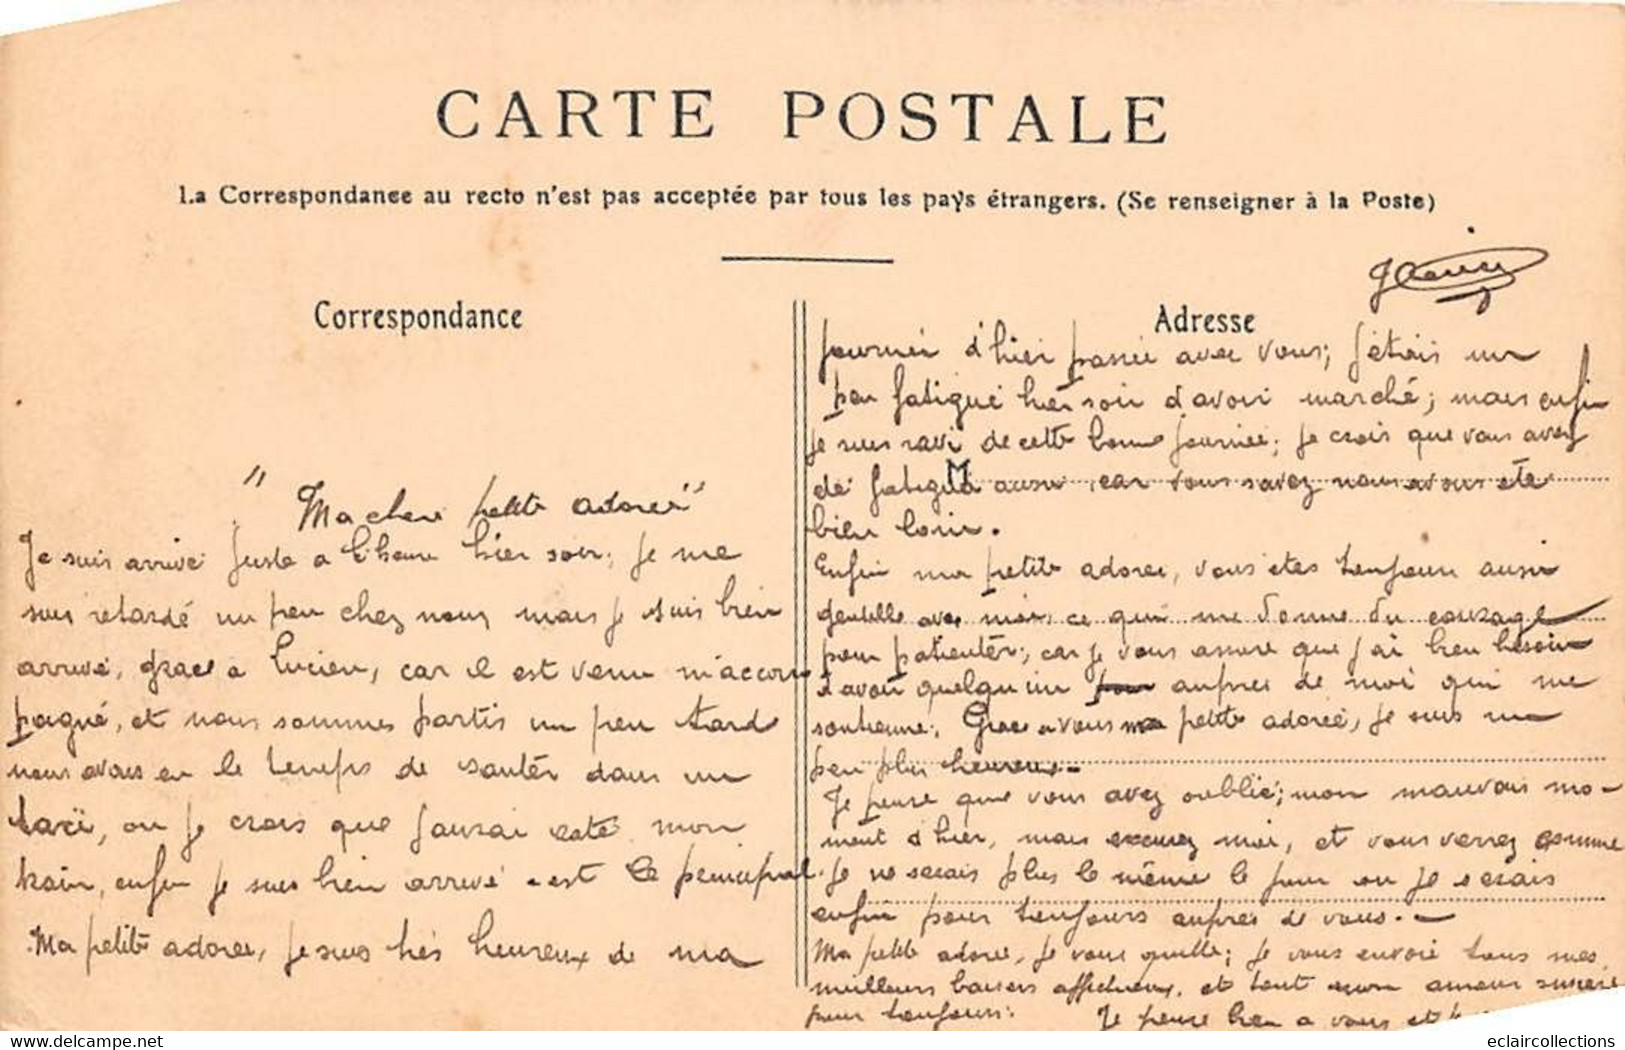 CARTE POSTALE
La Correspondance au recto n'est pas acceptée par tous les pays étrangers. (Se renseigner à la Poste)
Correspondance
" Ma chere petite adorée "
Je suis arrivé juste a l'heure hier soir, je me
suis retardé un peu chez nous mais je suis bien
arrivé, grace a Lucien, car il est venu m'accom
pagné, et nous sommes partis un peu tard
nous avons eu le temps de sauter dans un
taxi, ou je crois que j'aurai raté mon
train, enfin je suis bien arrivé c'est le principal.
Ma petite adorée, je suis très heureux de ma
Adresse
journée d'hier passée avec vous; j'étais un
peu fatigué hier soir d'avoir marché; mais enfin
je suis ravi de cette bonne journée; je crois que vous avez
dé fatigué aussi, car vous savez nous avons été
bien loin.
Enfin ma petite adorée, vous etes toujours aussi
gentille avec moi, ce qui me donne du courage
pour patienter, car je vous assure que j'ai bien besoin
d'avoir quelqu'un auprès de moi qui me
soutienne. Grace a vous ma petite adorée, je suis un
peu plus heureux.
Je pense que vous avez oublié; mon mauvais mo-
ment d'hier, mais excusez moi, et vous verrez comme
je ne serais plus le même le jour ou je serais
enfin pour toujours auprès de vous.
Ma petite adorée, je vous quitte; je vous envoie tous mes
meilleurs baisers affectueux, et tout mon amour sincère
pour toujours. Je pense bien a vous et
eclaircollections